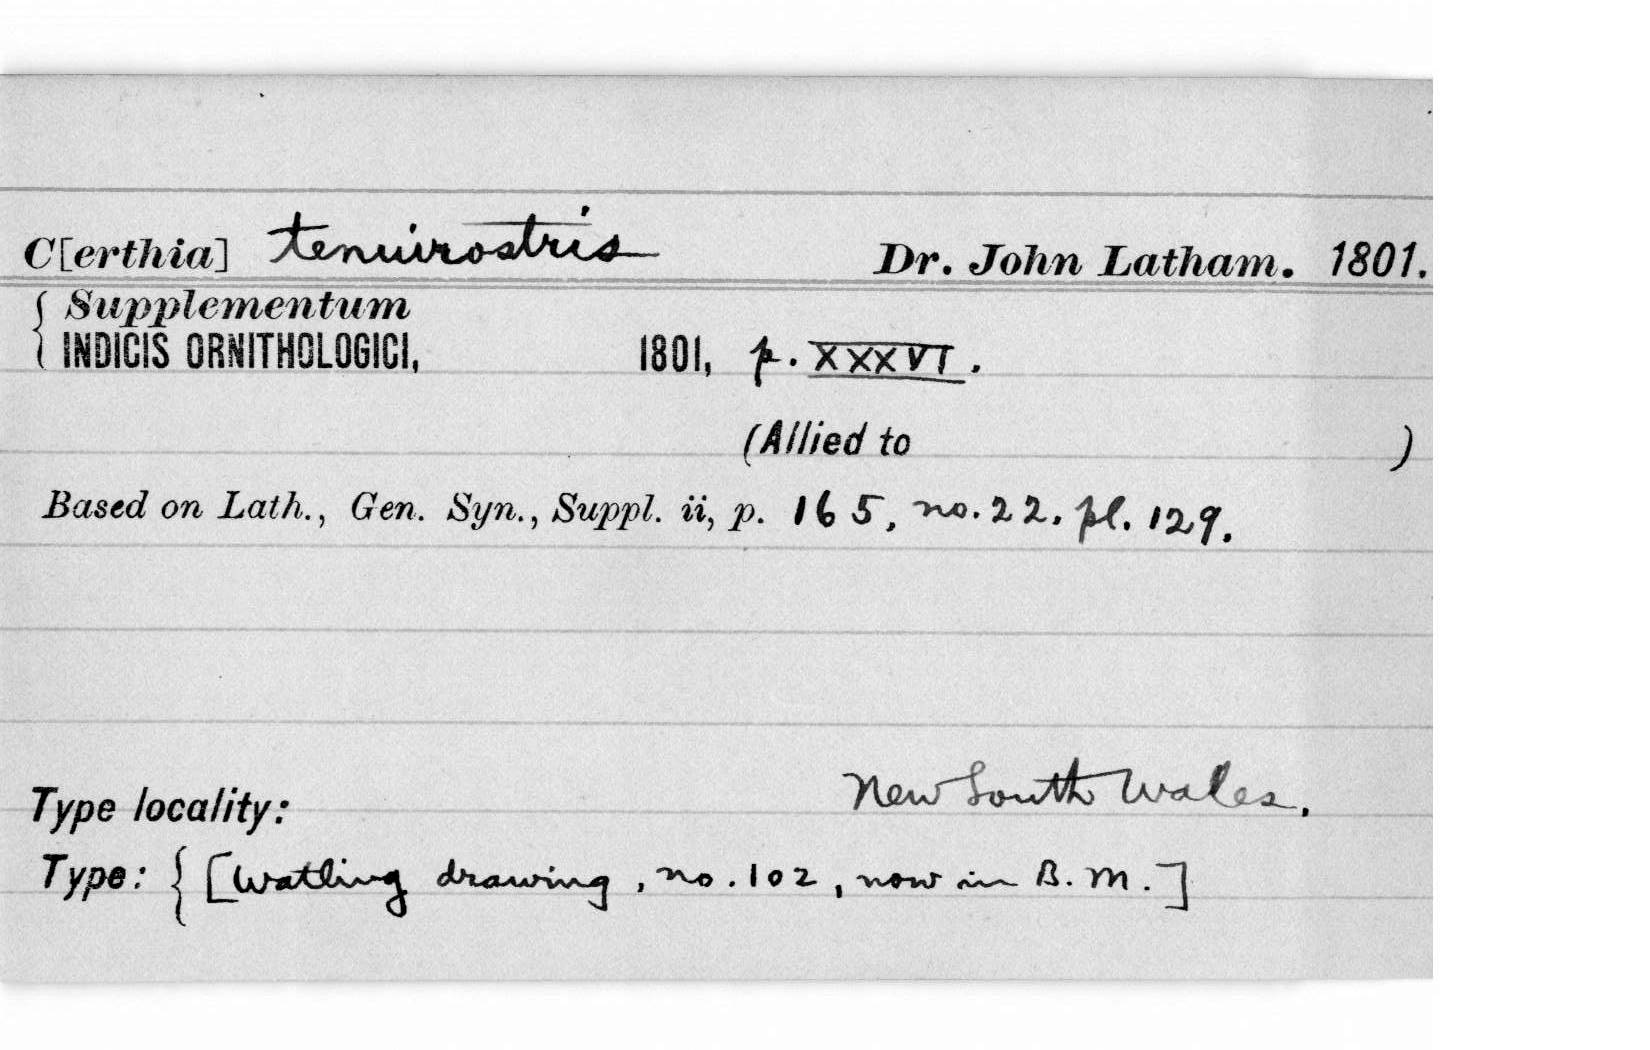 C[erthia] tenuirostris Dr. John Latham. 1801.
{ Supplementum
INDICIS ORNITHOLOGICI, 1801, p. XXXVI.
(Allied to )
Based on Lath., Gen. Syn., Suppl. ii, p. 165, no. 22. pl. 129.
Type locality: New South Wales.
Type: { [Watling drawing, no. 102, now in B. M.]